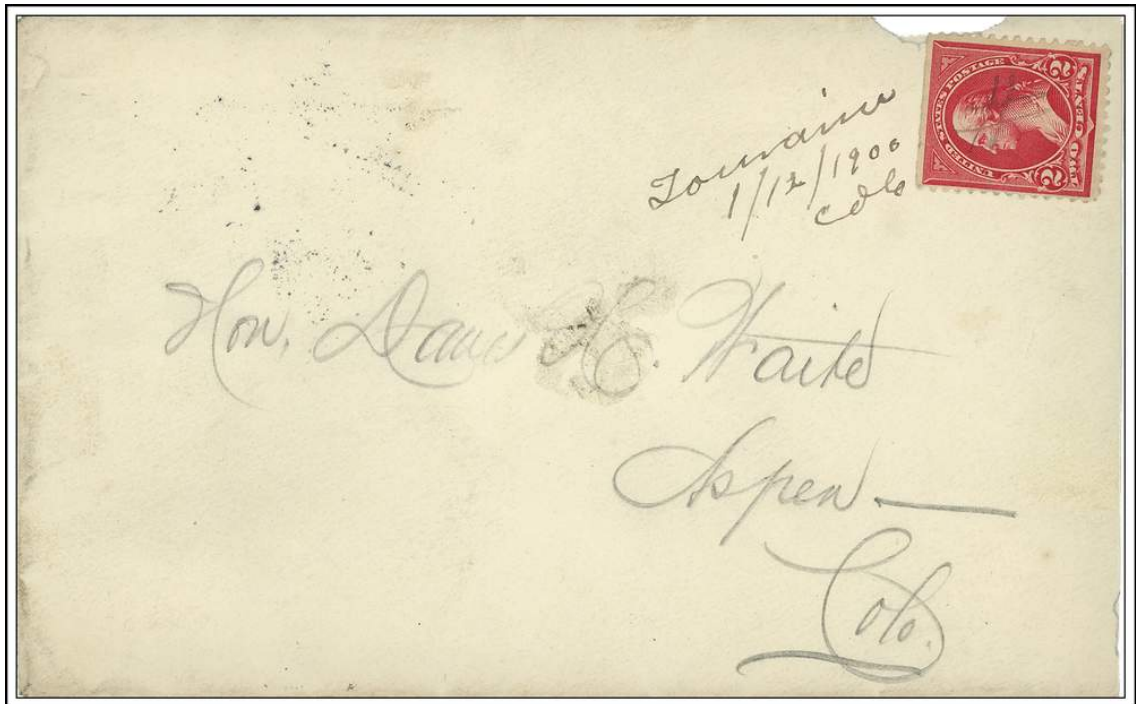 Touraine
1/12/1900
Colo
UNITED STATES POSTAGE
2 2
TWO CENTS
Hon. Davis H. Waite
Aspen —
Colo.